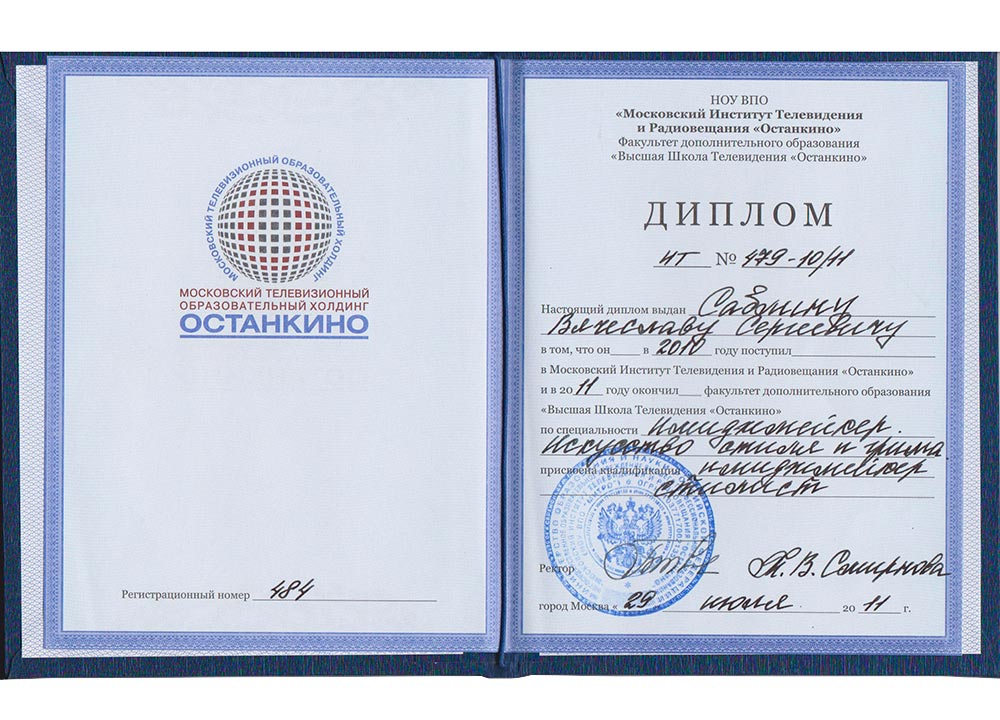 МОСКОВСКИЙ ТЕЛЕВИЗИОННЫЙ ОБРАЗОВАТЕЛЬНЫЙ ХОЛДИНГ
МОСКОВСКИЙ ТЕЛЕВИЗИОННЫЙ
ОБРАЗОВАТЕЛЬНЫЙ ХОЛДИНГ
ОСТАНКИНО
Регистрационный номер 484
НОУ ВПО
«Московский Институт Телевидения
и Радиовещания «Останкино»
Факультет дополнительного образования
«Высшая Школа Телевидения «Останкино»
ДИПЛОМ
ИТ № 479-10/11
Настоящий диплом выдан Саблину
Вячеславу Сергеевичу
в том, что он в 2010 году поступил
в Московский Институт Телевидения и Радиовещания «Останкино»
и в 2011 году окончил факультет дополнительного образования
«Высшая Школа Телевидения «Останкино»
по специальности Имиджмейкер.
Искусство стиля и грима
присвоена квалификация имиджмейкер
стилист
Ректор Т.В. Смирнова
город Москва « 29 июля 2011 г.